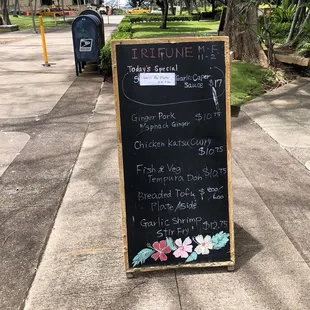 IRIFUNE M-F
11-2
Today's Special
Garlic Caper
Sauce $17
Ginger Pork $10.75
w/ Spinach Ginger
Chicken Katsu Curry $10.75
Fish & Veg
Tempura Don $10.75
Breaded Tofu
Plate/Side
Garlic Shrimp $12.75
Stir Fry